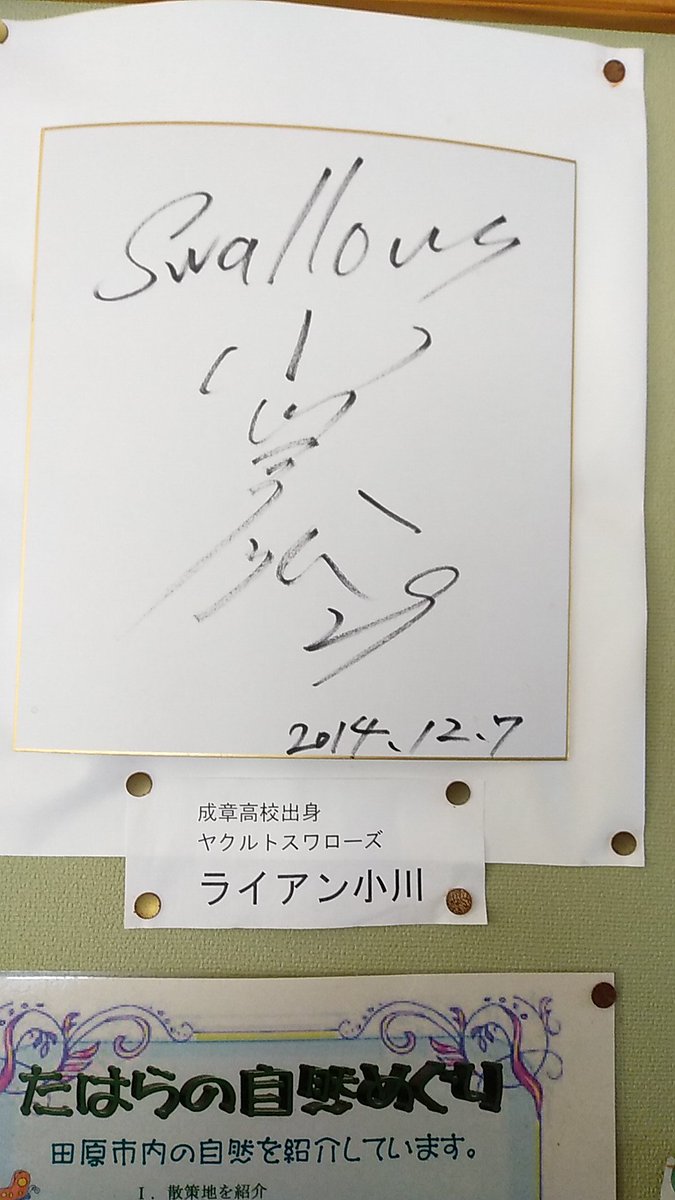 Swallows
小川泰弘
29
2014.12.7
成章高校出身
ヤクルトスワローズ
ライアン小川
たはらの自然めぐり
田原市内の自然を紹介しています。
1. 散策地を紹介